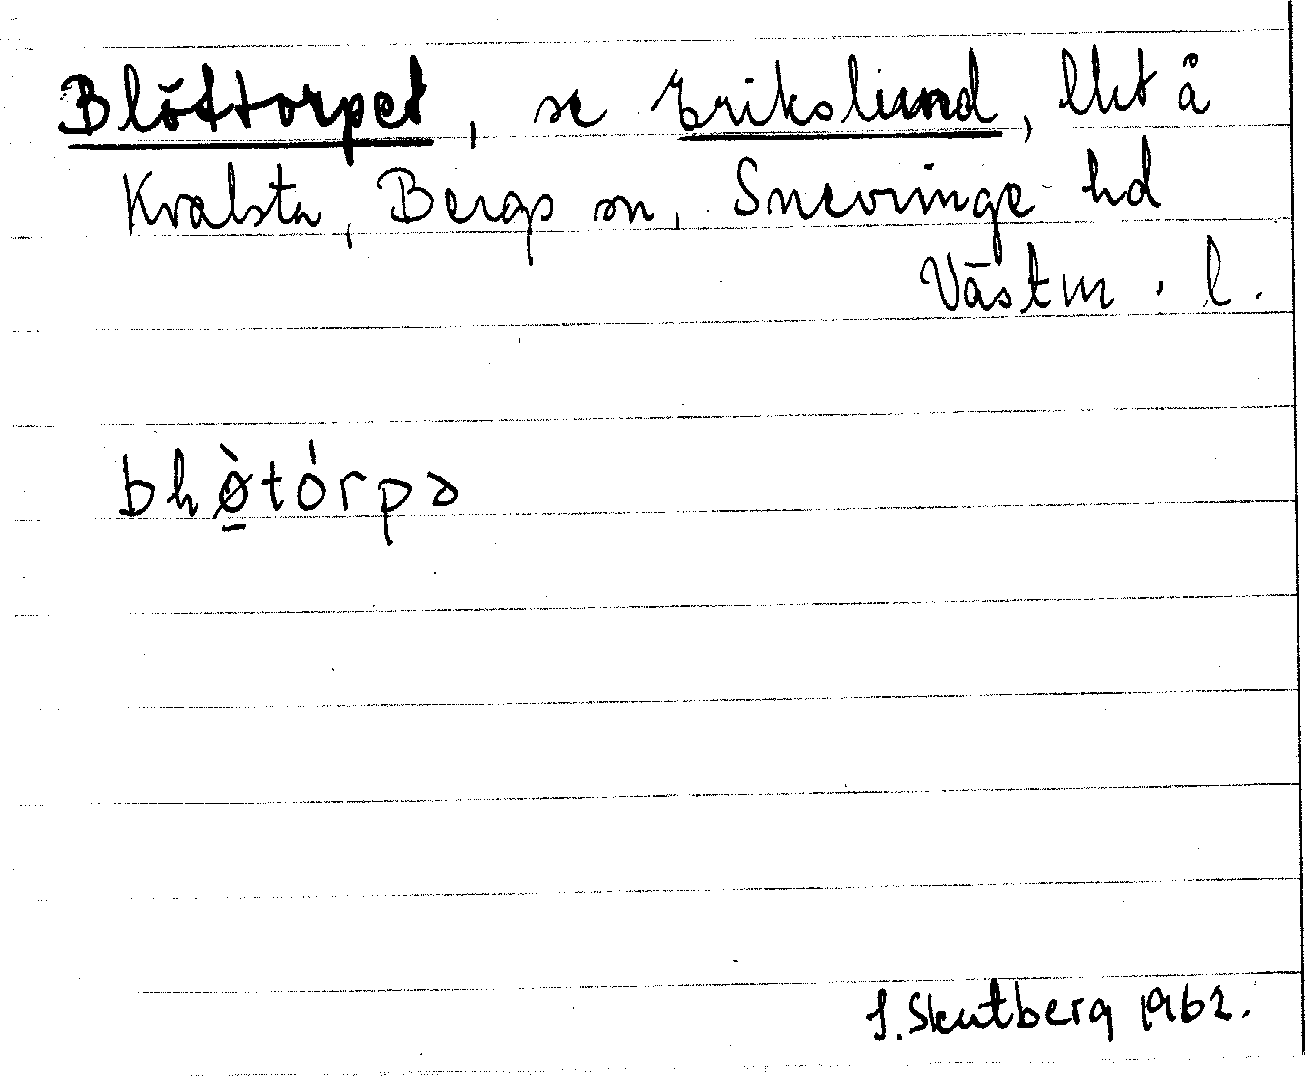 Blöttorpet, se Erikslund, lht å
Kvalsta, Bergs sn, Snevringe hd
Västm. l.
bhø̠̀tórpə
S. Skutberg 1962.